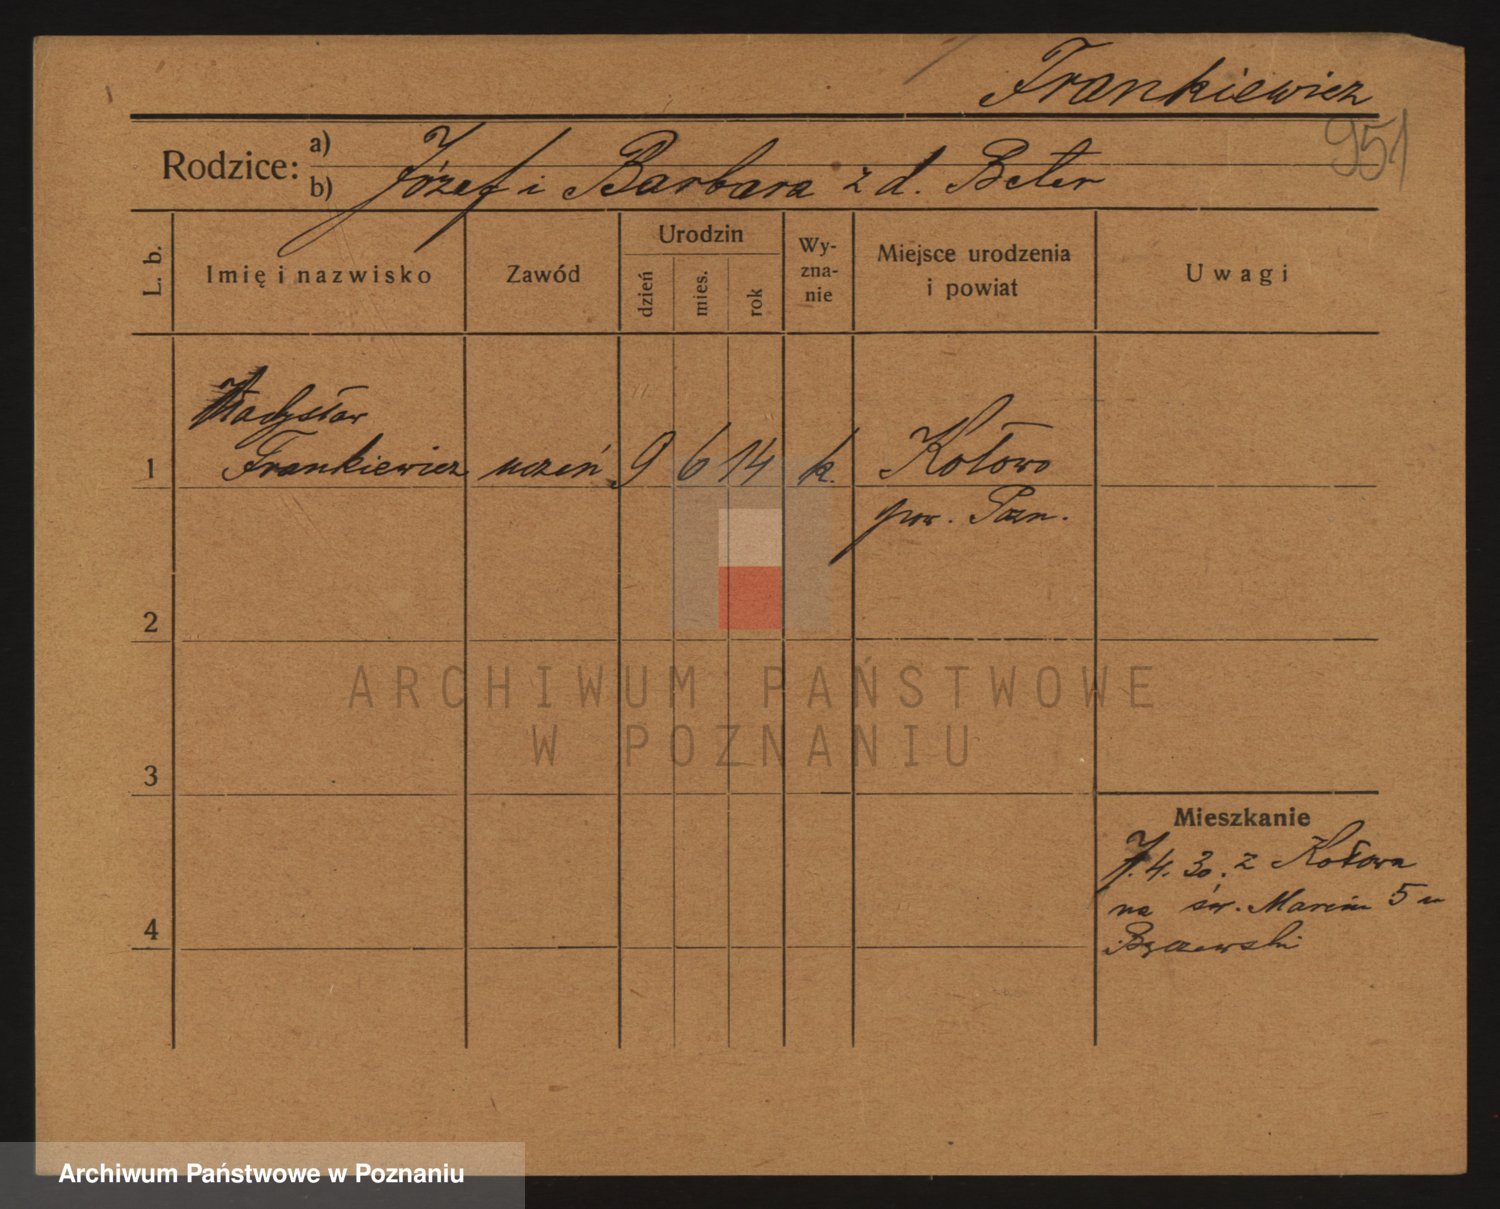 Frankiewicz
951
Rodzice: a)
b) Józef i Barbara z d. Beter
L. b. Imię i nazwisko Zawód Urodzin dzień mies. rok Wy-zna-nie Miejsce urodzenia i powiat Uwagi
Władysław
1 Frankiewicz uczeń 9 6 14 k. Kotowo
pow. Pozn.
2
3
4
Mieszkanie
7. 4. 30. z Kotowa
na św. Marcin 5 u
ARCHIWUM PAŃSTWOWE
W POZNANIU
Archiwum Państwowe w Poznaniu